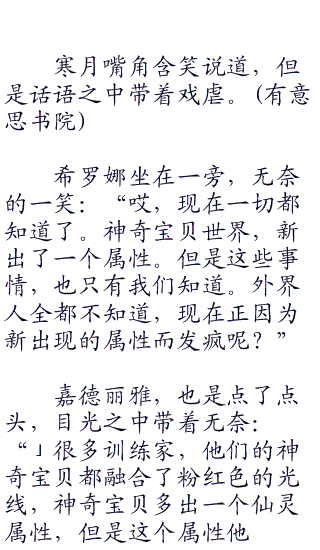 寒月嘴角含笑说道，但
是话语之中带着戏虐。（有意
思书院）
希罗娜坐在一旁，无奈
的一笑：“哎，现在一切都
知道了。神奇宝贝世界，新
出了一个属性。但是这些事
情，也只有我们知道。外界
人全都不知道，现在正因为
新出现的属性而发疯呢？”
嘉德丽雅，也是点了点
头，目光之中带着无奈：
“」很多训练家，他们的神
奇宝贝都融合了粉红色的光
线，神奇宝贝多出一个仙灵
属性，但是这个属性他